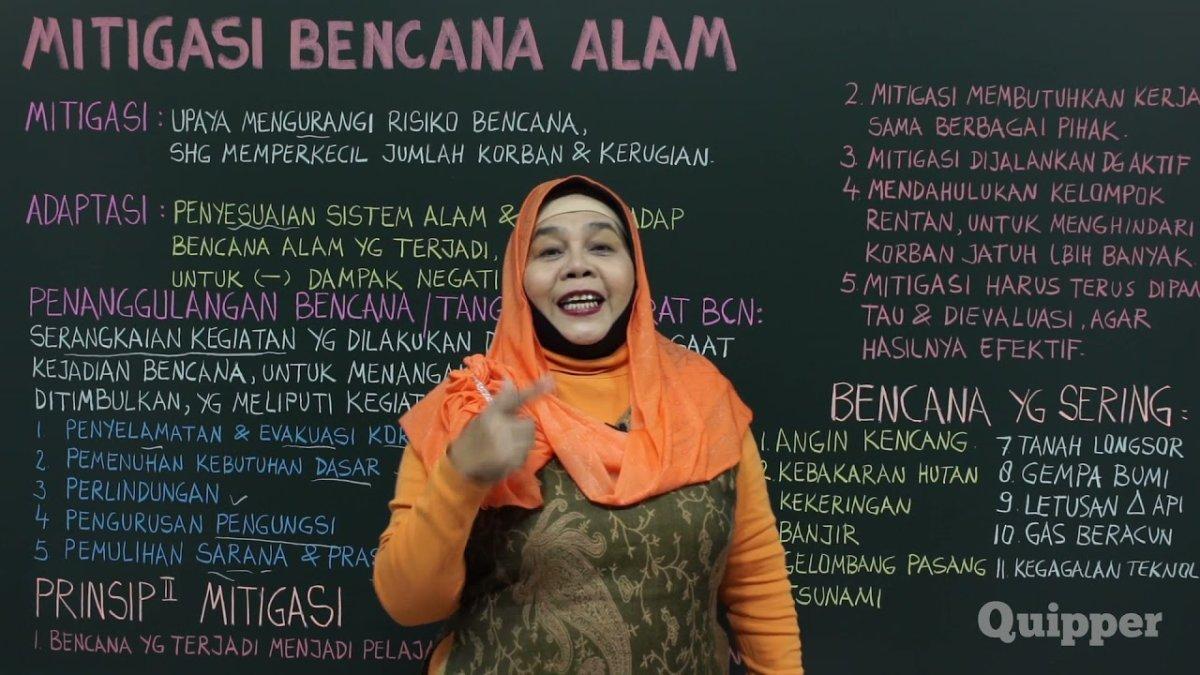 MITIGASI BENCANA ALAM
MITIGASI : UPAYA MENGURANGI RISIKO BENCANA,
SHG MEMPERKECIL JUMLAH KORBAN & KERUGIAN.
ADAPTASI : PENYESUAIAN SISTEM ALAM &
BENCANA ALAM YG TERJADI,
UNTUK (-) DAMPAK
PENANGGULANGAN BENCANA / BCN:
SERANGKAIAN KEGIATAN YG DILAKUKAN
KEJADIAN BENCANA, UNTUK
DITIMBULKAN, YG MELIPUTI
1 PENYELAMATAN & EVAKUASI
2 PEMENUHAN KEBUTUHAN DASAR
3 PERLINDUNGAN ✓
4 PENGURUSAN PENGUNGSI
5 PEMULIHAN SARANA &
PRINSIP II MITIGASI
1. BENCANA YG TERJADI MENJADI
2. MITIGASI MEMBUTUHKAN KERJA
SAMA BERBAGAI PIHAK.
3. MITIGASI DIJALANKAN DG AKTIF
4. MENDAHULUKAN KELOMPOK
RENTAN, UNTUK MENGHINDARI
KORBAN JATUH LBIH BANYAK.
5. MITIGASI HARUS TERUS DIPAN
TAU & DIEVALUASI, AGAR
HASILNYA EFEKTIF.
BENCANA YG SERING :
1. ANGIN KENCANG
2. KEBAKARAN HUTAN
KEKERINGAN
BANJIR
GELOMBANG PASANG
TSUNAMI
7 TANAH LONGSOR
8. GEMPA BUMI
9. LETUSAN Δ API
10. GAS BERACUN
11. KEGAGALAN
Quipper